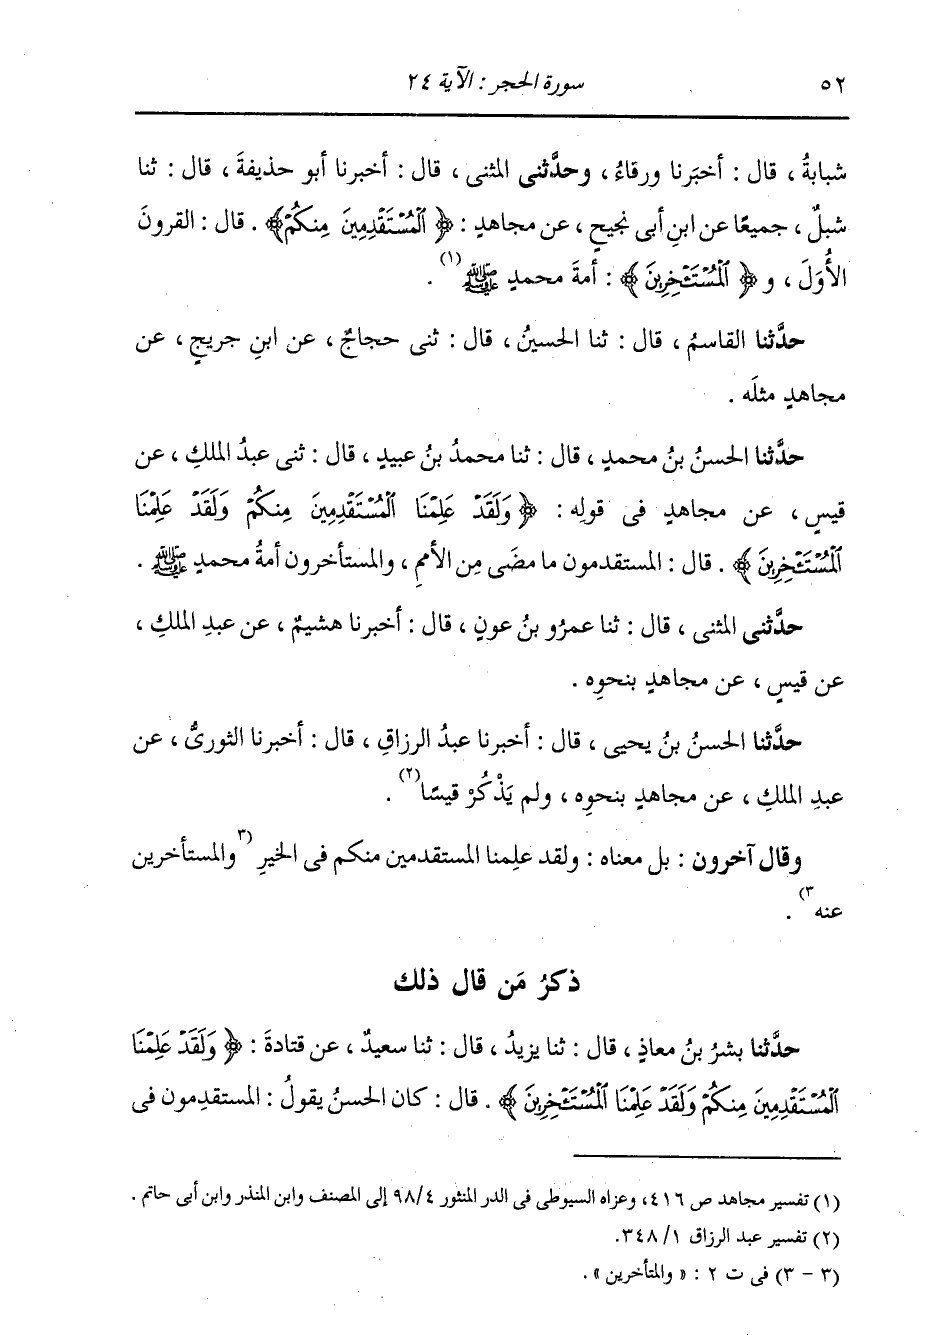 ٥٢ سورة الحجر : الآية ٢٤
شبابةُ ، قال : أخبَرنا ورقاءُ ، وحدَّثنى المثنى ، قال : أخبرنا أبو حذيفةَ ، قال : ثنا
شبلٌ ، جميعًا عن ابنِ أبى نجيحٍ ، عن مجاهدٍ : ﴿ ٱلْمُسْتَقْدِمِينَ مِنكُمْ ﴾ . قال : القرونَ
الأُوَلَ ، و ﴿ ٱلْمُسْتَـْٔخِرِينَ ﴾ : أمةَ محمدٍ ﷺ (١) .
حدَّثنا القاسمُ ، قال : ثنا الحسينُ ، قال : ثنى حجاجٌ ، عن ابنِ جريجٍ ، عن
مجاهدٍ مثلَه .
حدَّثنا الحسنُ بنُ محمدٍ ، قال : ثنا محمدُ بنُ عبيدٍ ، قال : ثنى عبدُ الملكِ ، عن
قيسٍ ، عن مجاهدٍ فى قولِه : ﴿ وَلَقَدْ عَلِمْنَا ٱلْمُسْتَقْدِمِينَ مِنكُمْ وَلَقَدْ عَلِمْنَا
ٱلْمُسْتَـْٔخِرِينَ ﴾ . قال : المستقدمون ما مضَى مِن الأممِ ، والمستأخرون أمةُ محمدٍ ﷺ .
حدَّثنى المثنى ، قال : ثنا عمرُو بنُ عونٍ ، قال : أخبرنا هشيمٌ ، عن عبدِ الملكِ ،
عن قيسٍ ، عن مجاهدٍ بنحوِه .
حدَّثنا الحسنُ بنُ يحيى ، قال : أخبرنا عبدُ الرزاقِ ، قال : أخبرنا الثورىُّ ، عن
عبدِ الملكِ ، عن مجاهدٍ بنحوِه ، ولم يَذْكُرْ قيسًا (٢) .
وقال آخرون : بل معناه : ولقد علِمنا المستقدمين منكم فى الخيرِ (٣ والمستأخرين
عنه ٣) .
ذكرُ مَن قال ذلك
حدَّثنا بشرُ بنُ معاذٍ ، قال : ثنا يزيدُ ، قال : ثنا سعيدٌ ، عن قتادةَ : ﴿ وَلَقَدْ عَلِمْنَا
ٱلْمُسْتَقْدِمِينَ مِنكُمْ وَلَقَدْ عَلِمْنَا ٱلْمُسْتَـْٔخِرِينَ ﴾ . قال : كان الحسنُ يقولُ : المستقدِمون فى
(١) تفسير مجاهد ص ٤١٦، وعزاه السيوطى فى الدر المنثور ٩٨/٤ إلى المصنف وابن المنذر وابن أبى حاتم .
(٢) تفسير عبد الرزاق ١/ ٣٤٨.
(٣ - ٣) فى ت ٢ : « والمتأخرين » .